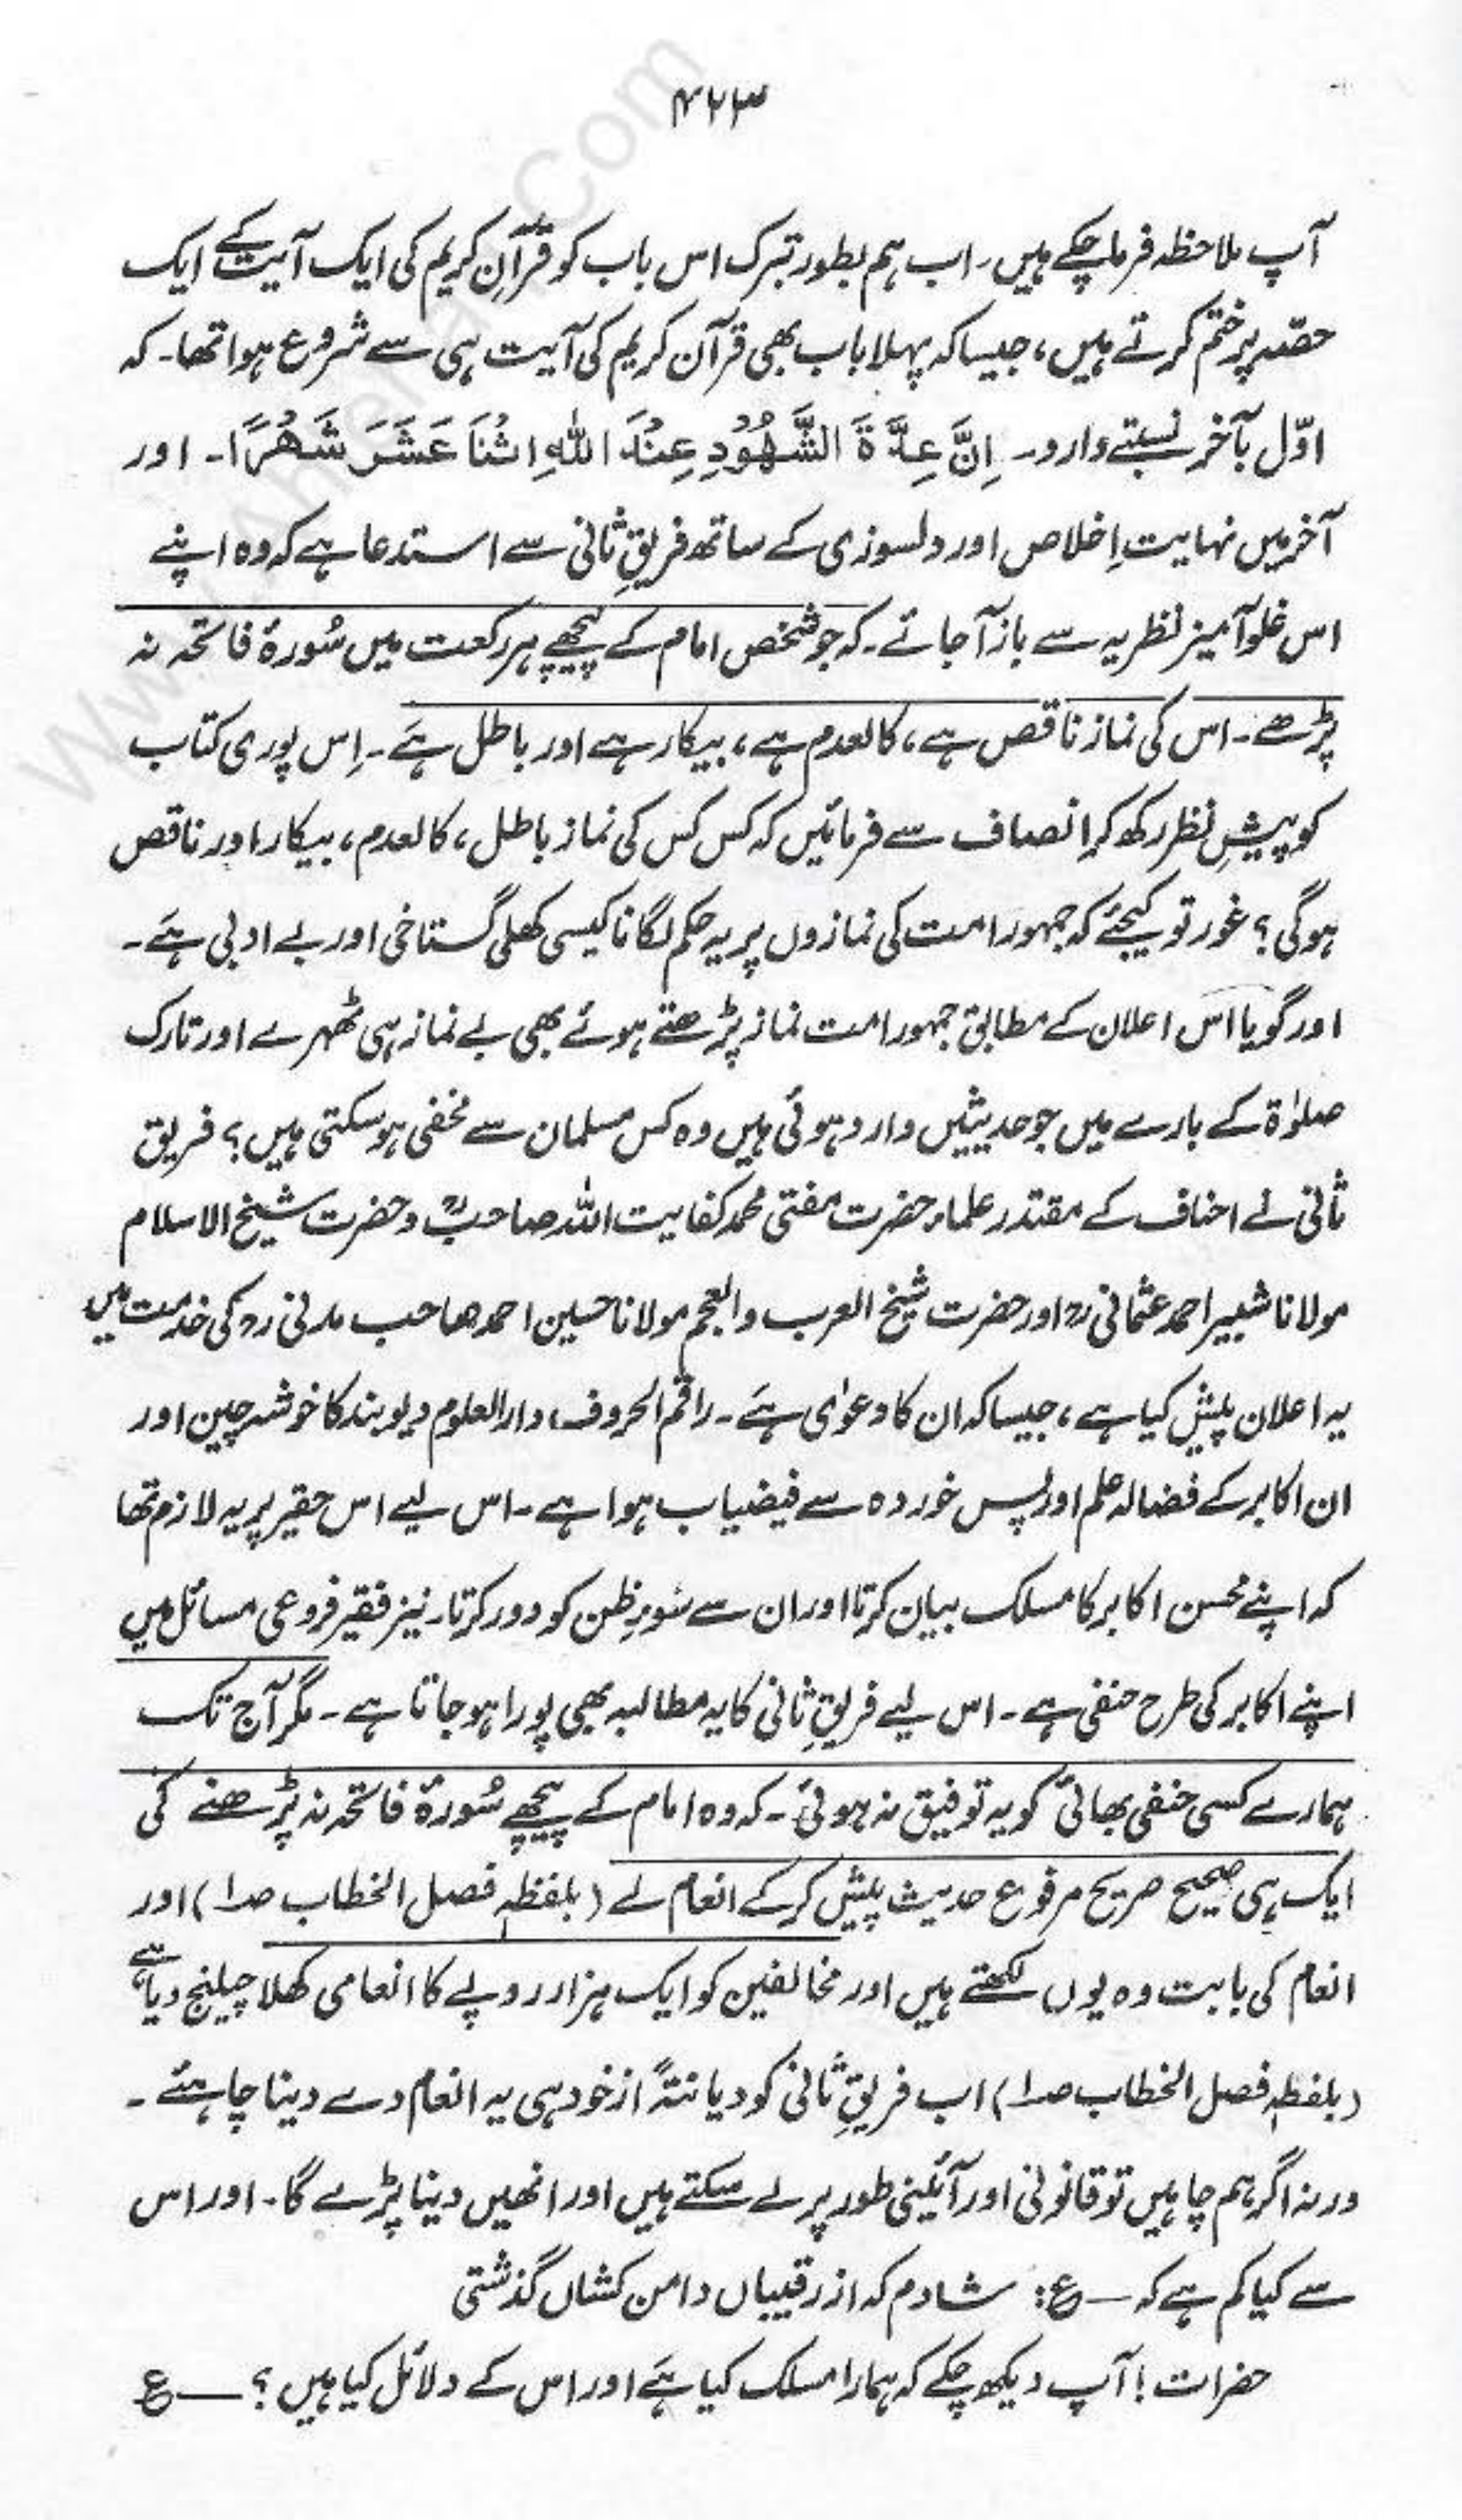 ۴۲۳
آپ ملاحظہ فرما چکے ہیں۔ اب ہم بطور تبرک اس باب کو قرآنِ کریم کی ایک آیت کے ایک
حصّہ پر ختم کرتے ہیں، جیسا کہ پہلا باب بھی قرآن کریم کی آیت ہی سے شروع ہوا تھا۔ کہ
اوّل بآخر نسبتے دارد۔ اِنَّ عِدَّةَ الشُّهُوْرِ عِنْدَ اللّٰهِ اثْنَا عَشَرَ شَهْرًا۔ اور
آخر میں نہایت اِخلاص اور دلسوزی کے ساتھ فریقِ ثانی سے استدعا ہے کہ وہ اپنے
اس غلو آمیز نظریہ سے باز آ جائے۔ کہ جو شخص امام کے پیچھے ہر رکعت میں سُورۂ فاتحہ نہ
پڑھے۔ اس کی نماز ناقص ہے، کالعدم ہے، بیکار ہے اور باطل ہَے۔ اِس پوری کتاب
کو پیشِ نظر رکھ کر انصاف سے فرمائیں کہ کس کس کی نماز باطل، کالعدم، بیکار اور ناقص
ہوگی؟ غور تو کیجئے کہ جمہور امت کی نمازوں پر یہ حکم لگانا کیسی کھلی گستاخی اور بے ادبی ہَے۔
اور گویا اس اعلان کے مطابق جمہور امت نماز پڑھتے ہوئے بھی بے نماز ہی ٹھہرے اور تارک
صلوٰۃ کے بارے میں جو حدیثیں وارد ہوئی ہیں وہ کس مسلمان سے مخفی ہو سکتی ہیں؟ فریق
ثانی نے احناف کے مقتدر علماء حضرت مفتی محمد کفایت اللہ صاحبؒ و حضرت شیخ الاسلام
مولانا شبیر احمد عثمانی رح اور حضرت شیخ العرب والعجم مولانا حسین احمد صاحب مدنی رح کی خدمت میں
یہ اعلان پیش کیا ہے، جیسا کہ ان کا دعوٰی ہَے۔ راقم الحروف دارالعلوم دیوبند کا خوشہ چین اور
ان اکابر کے فضالہ علم اور پس خوردہ سے فیضیاب ہوا ہے۔ اس لیے اس حقیر پر یہ لازم تھا
کہ اپنے محسن اکابر کا مسلک بیان کرتا اور ان سے سُوءِ ظن کو دور کرتا۔ نیز فقیر فروعی مسائل میں
اپنے اکابر کی طرح حنفی ہے۔ اس لیے فریقِ ثانی کا یہ مطالبہ بھی پورا ہو جاتا ہے۔ مگر آج تک
ہمارے کسی حنفی بھائی کو یہ توفیق نہ ہوئی۔ کہ وہ امام کے پیچھے سُورۂ فاتحہ نہ پڑھنے کی
ایک ہی صحیح صریح مرفوع حدیث پیش کر کے انعام لے (بلفظہٖ فصل الخطاب صـ۱) اور
انعام کی بابت وہ یوں لکھتے ہیں اور مخالفین کو ایک ہزار روپے کا انعامی کھلا چیلنج دیا ہے
(بلفظہٖ فصل الخطاب صـ۱) اب فریقِ ثانی کو دیانتہً از خود ہی یہ انعام دے دینا چاہئے۔
ورنہ اگر ہم چاہیں تو قانونی اور آئینی طور پر لے سکتے ہیں اور انھیں دینا پڑے گا۔ اور اس
سے کیا کم ہے کہ — ع: شادم کہ از رقیباں دامن کشاں گذشتی
حضرات! آپ دیکھ چکے کہ ہمارا مسلک کیا ہَے اور اس کے دلائل کیا ہیں؟ — ع